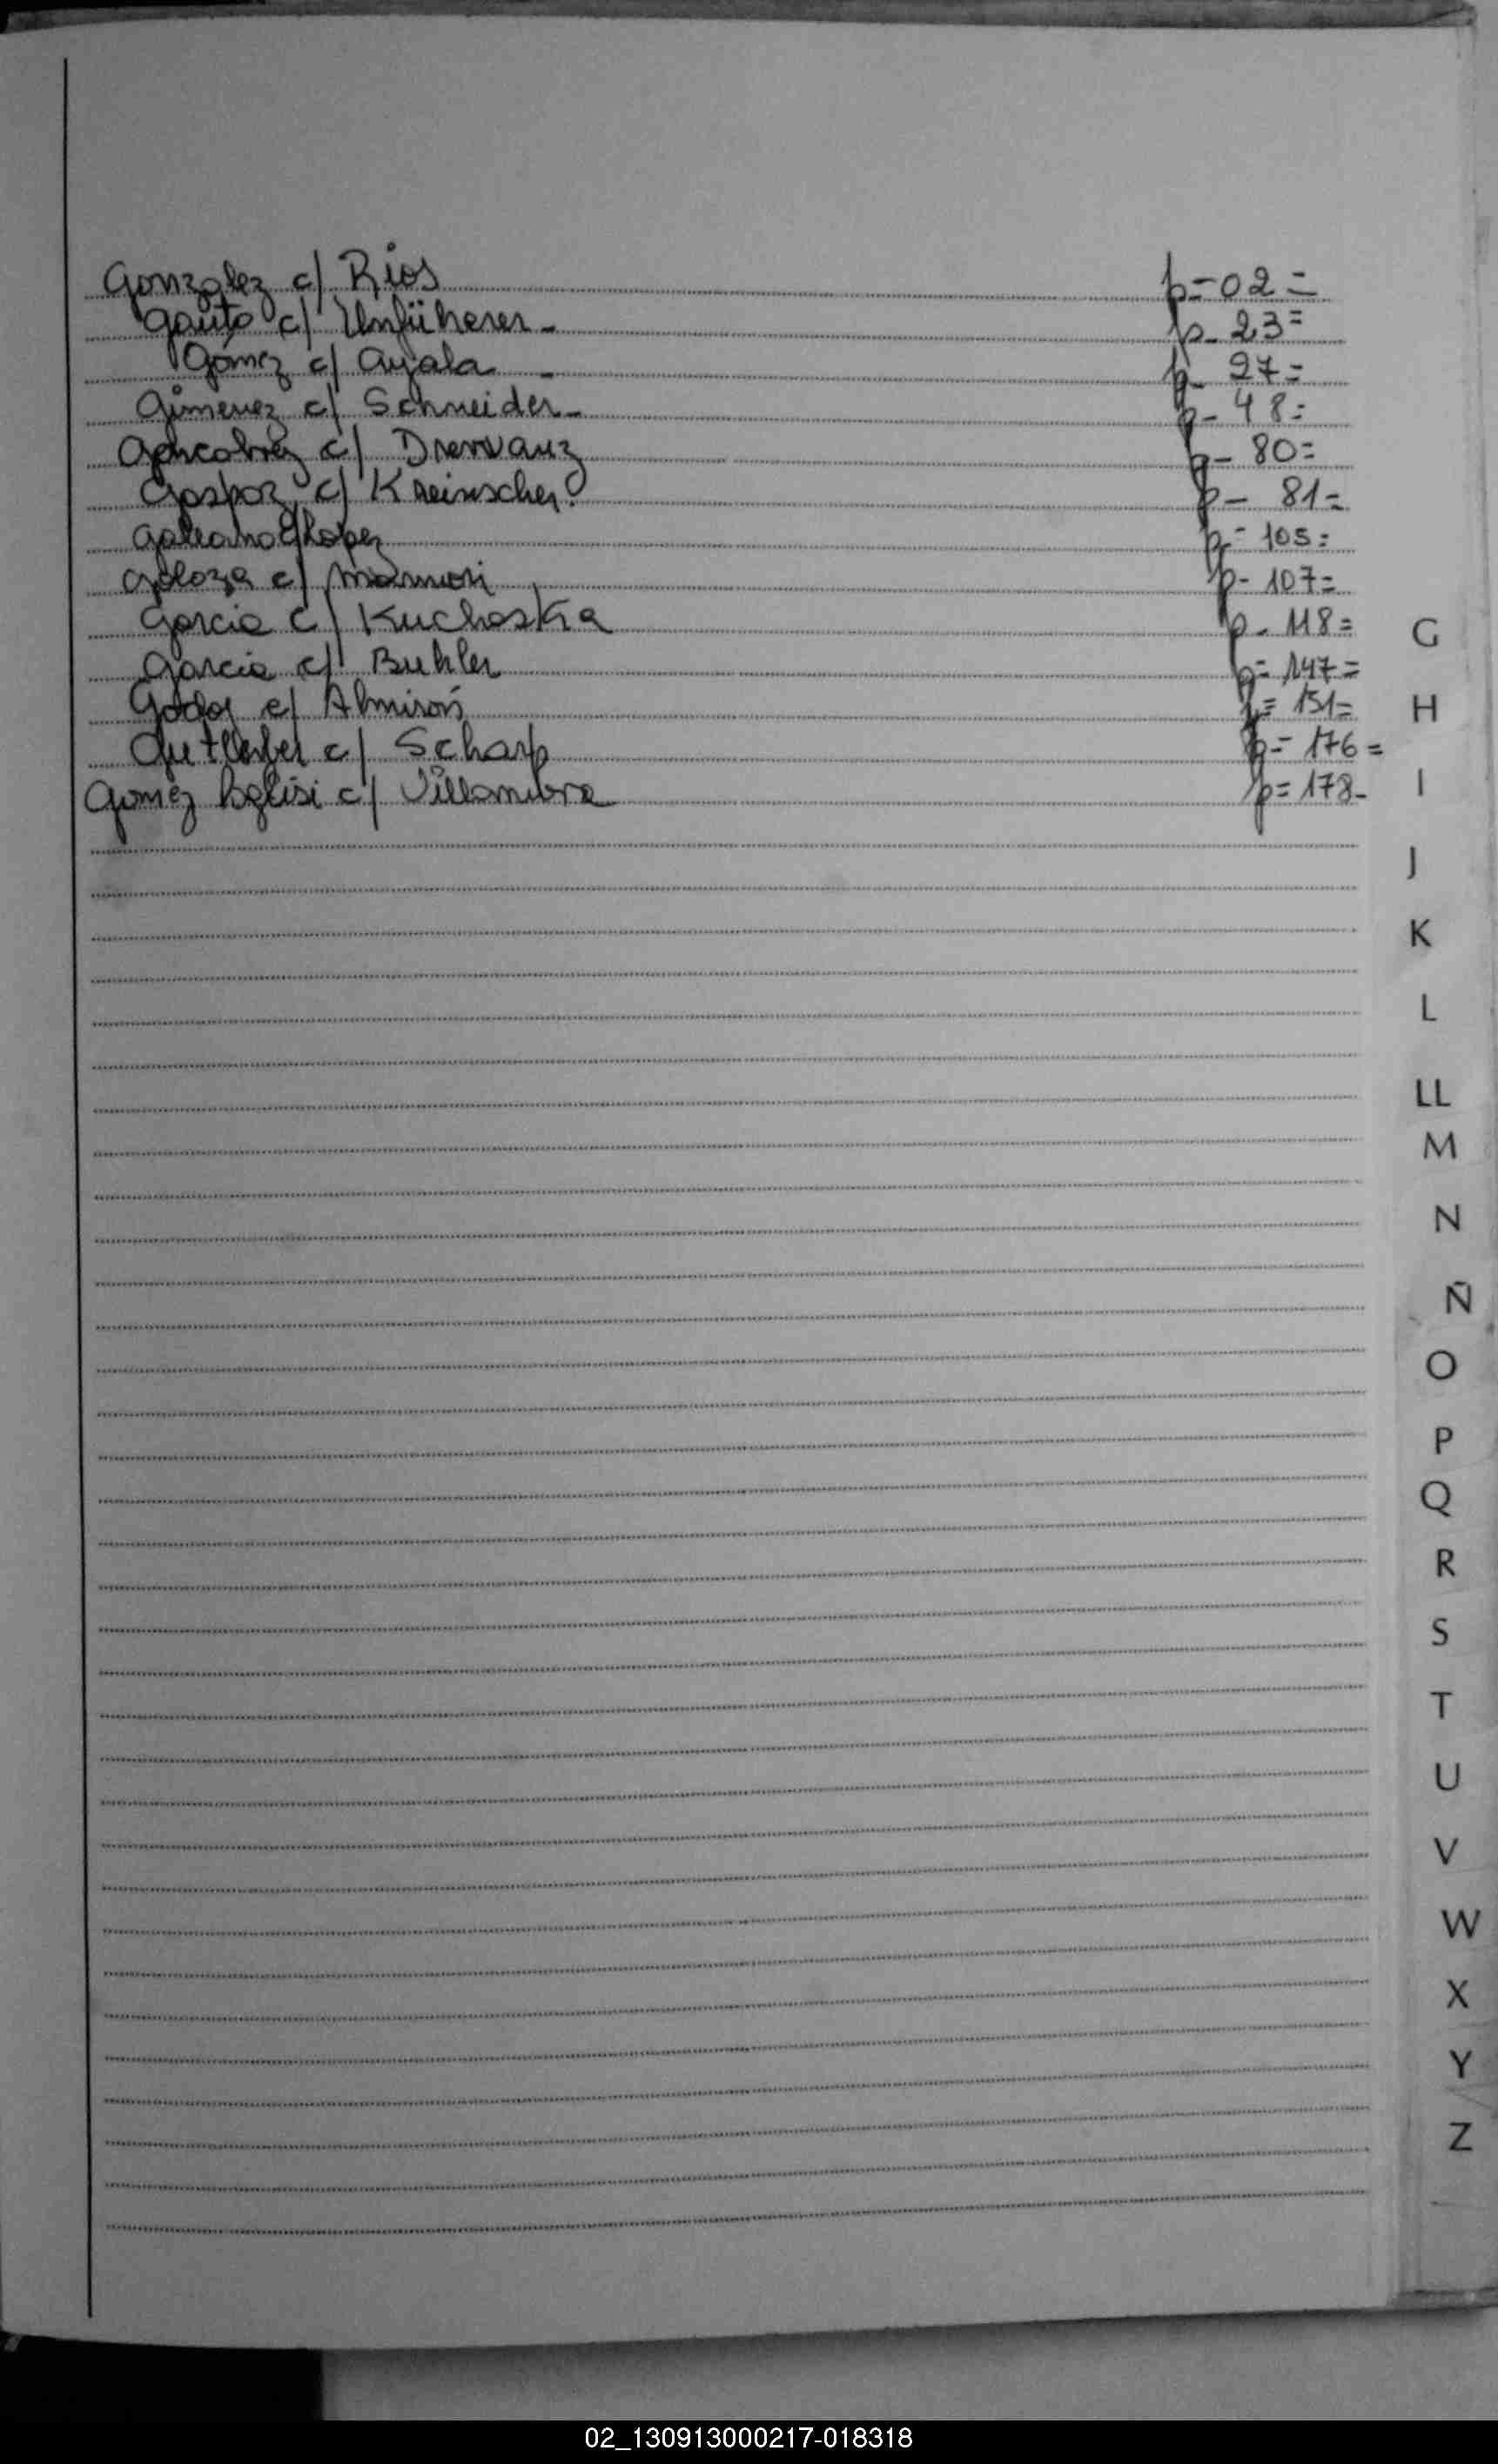 Gonzalez c/ Rios p-02=
Gauto c/ Unfüherer- p-23=
Gómez c/ Ayala - p-27=
Gimenez c/ Schneider- p-48=
c/ p-80=
Gaspar c/ p-81=
Galeano c/ Lopez p-105=
c/ p-107=
Garcia c/ Kuchaska p-118=
Garcia c/ Buhler p=147=
Godoy c/ Almirón p=151=
c/ Scharp p=176=
Gomez c/ Villamibre p=178-
G
H
I
J
K
L
LL
M
N
Ñ
O
P
Q
R
S
T
U
V
W
X
Y
Z
02_130913000217-018318